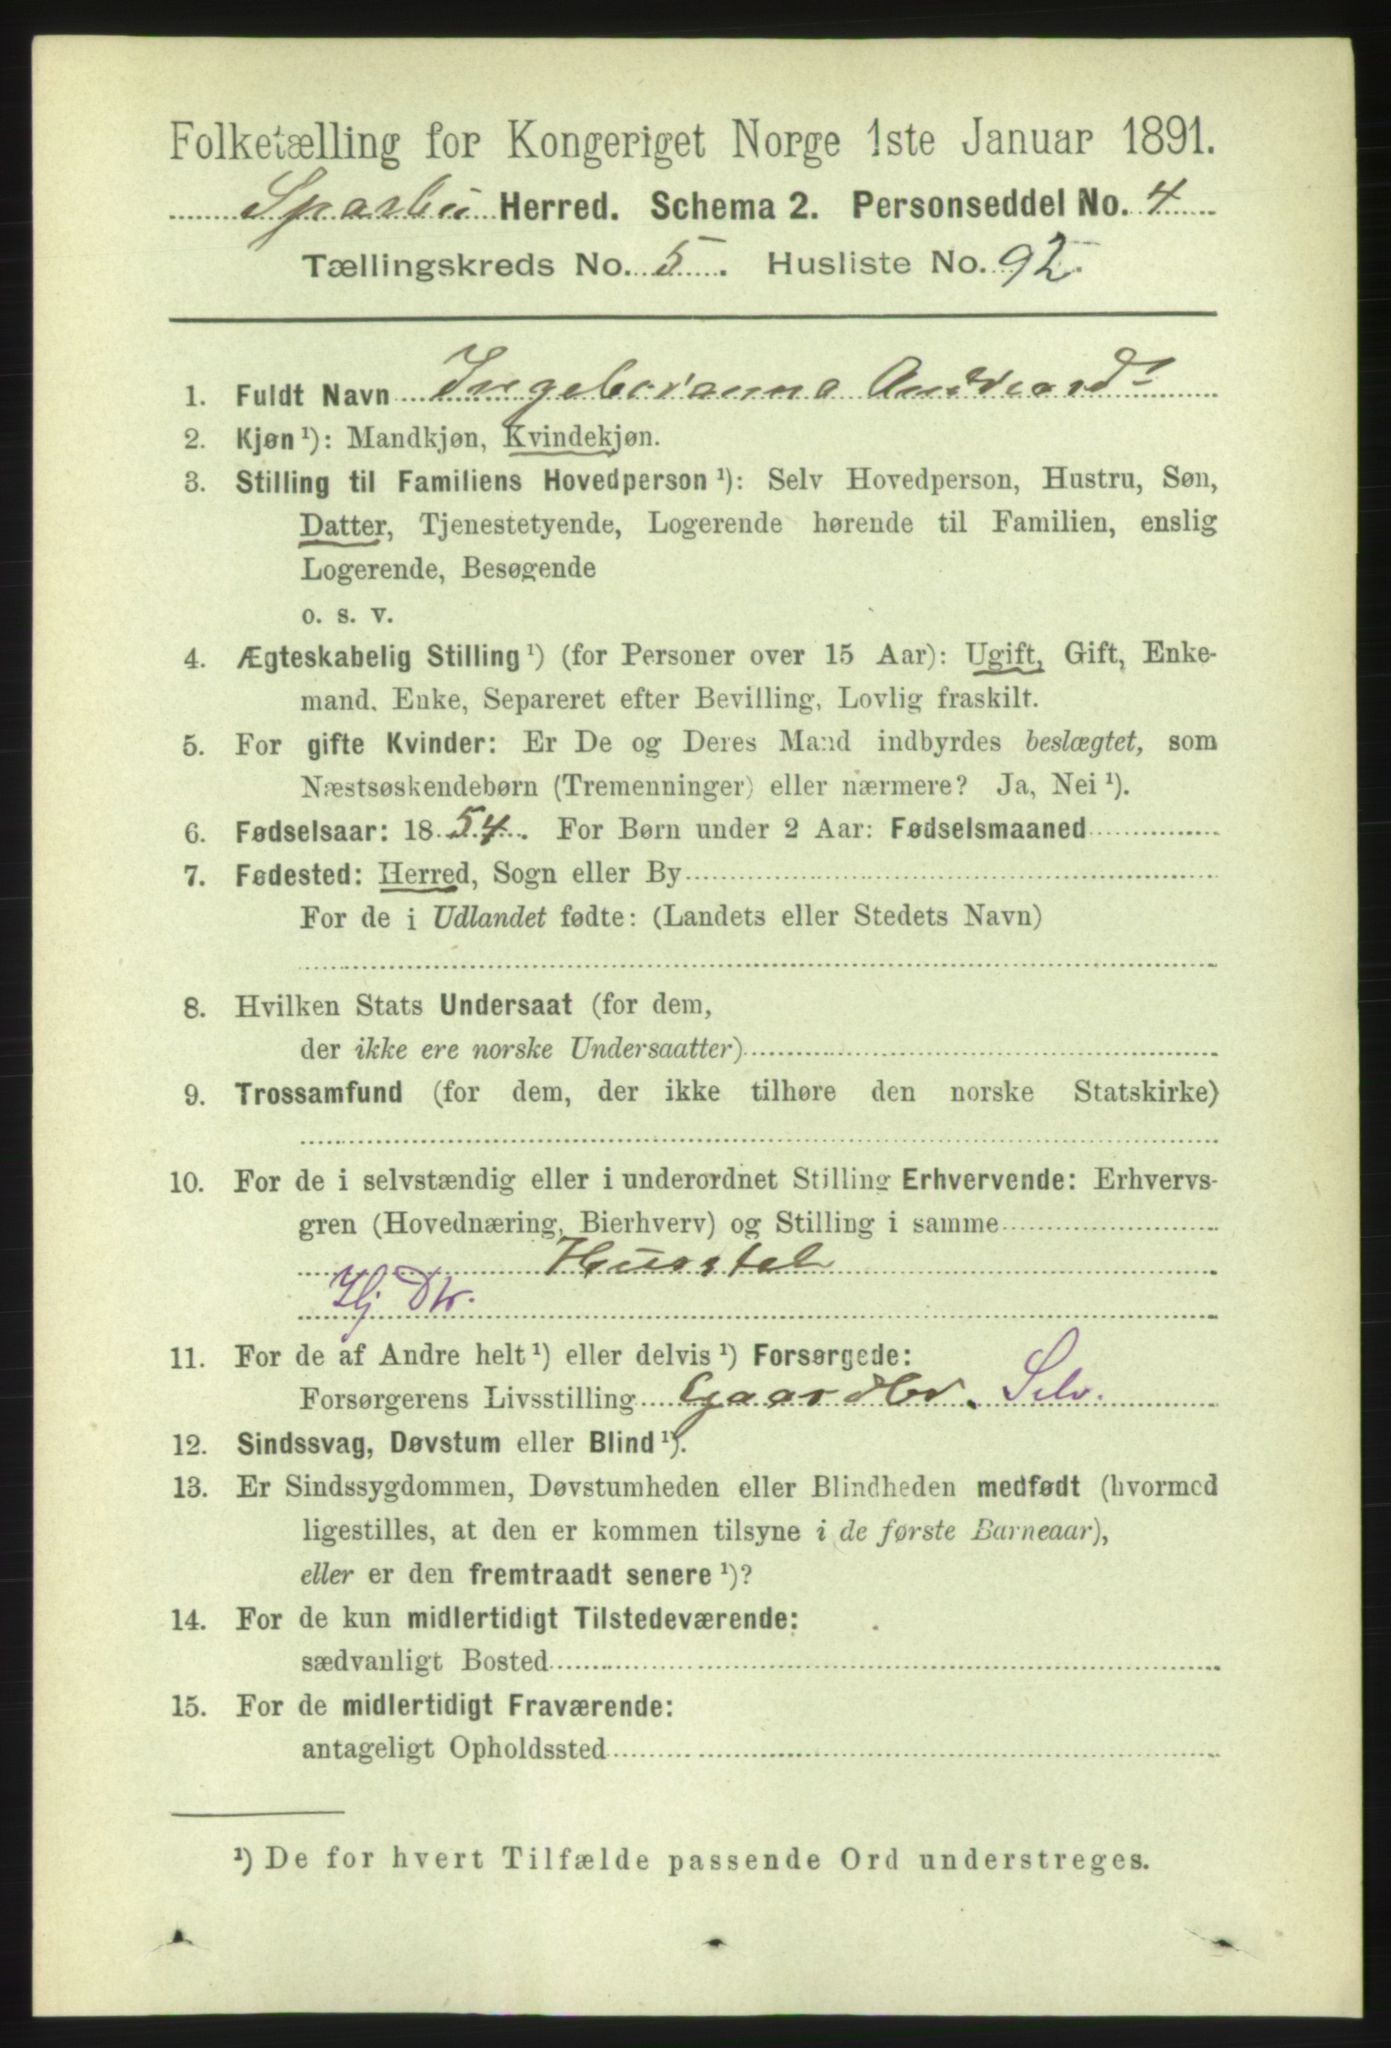 Folketælling for Kongeriget Norge 1ste Januar 1891.
Sparbu Herred. Schema 2. Personseddel No. 4
Tællingskreds No. 5. Husliste No. 92.
1. Fuldt Navn Ingeboranna Andreasd.
2. Kjøn ¹): Mandkjøn, Kvindekjøn.
3. Stilling til Familiens Hovedperson ¹): Selv Hovedperson, Hustru, Søn,
Datter, Tjenestetyende, Logerende hørende til Familien, enslig
Logerende, Besøgende
o. s. v.
4. Ægteskabelig Stilling ¹) (for Personer over 15 Aar): Ugift, Gift, Enke-
mand, Enke, Separeret efter Bevilling, Lovlig fraskilt.
5. For gifte Kvinder: Er De og Deres Mand indbyrdes beslægtet, som
Næstsøskendebørn (Tremenninger) eller nærmere? Ja, Nei ¹).
6. Fødselsaar: 1854. For Børn under 2 Aar: Fødselsmaaned
7. Fødested: Herred, Sogn eller By
For de i Udlandet fødte: (Landets eller Stedets Navn)
8. Hvilken Stats Undersaat (for dem,
der ikke ere norske Undersaatter)
9. Trossamfund (for dem, der ikke tilhøre den norske Statskirke)
10. For de i selvstændig eller i underordnet Stilling Erhvervende: Erhvervs-
gren (Hovednæring, Bierhverv) og Stilling i samme
Husstel
Hj Dtr.
11. For de af Andre helt ¹) eller delvis ¹) Forsørgede:
Forsørgerens Livsstilling Gaardbr. Selv.
12. Sindssvag, Døvstum eller Blind ¹).
13. Er Sindssygdommen, Døvstumheden eller Blindheden medfødt (hvormed
ligestilles, at den er kommen tilsyne i de første Barneaar),
eller er den fremtraadt senere ¹)?
14. For de kun midlertidigt Tilstedeværende:
sædvanligt Bosted
15. For de midlertidigt Fraværende:
antageligt Opholdssted
¹) De for hvert Tilfælde passende Ord understreges.